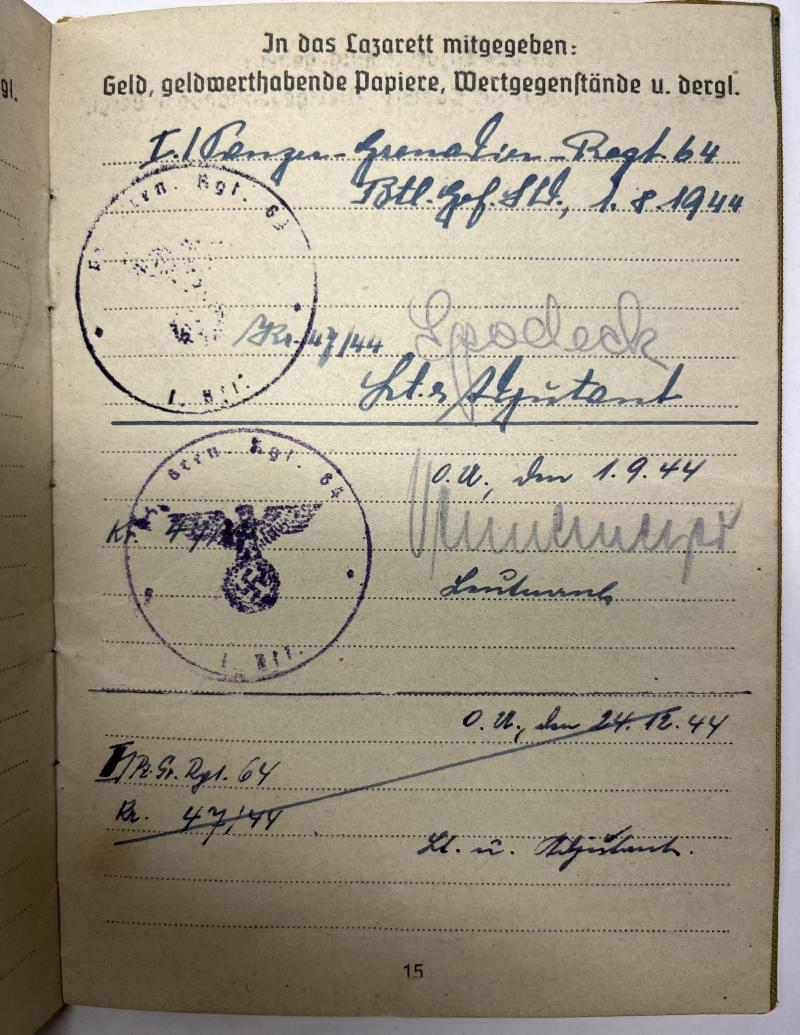 gl.
In das Lazarett mitgegeben:
Geld, geldwerthabende Papiere, Wertgegenstände u. dergl.
I./Panzer-Grenadier-Regt. 64
Btl. Gef. Std., 1.8.1944
Gren. Rgt. 64
Kr. 47/44
Spodeck
Lt. u. Adjutant
I. Btl.
Gren. Rgt. 64
O.U., den 1.9.44
Kr. 47/44
Leutnant
I. Btl.
O.U., den 24.12.44
I/Pz. Gr. Rgt. 64
Kr. 47/44
Lt. u. Adjutant.
15